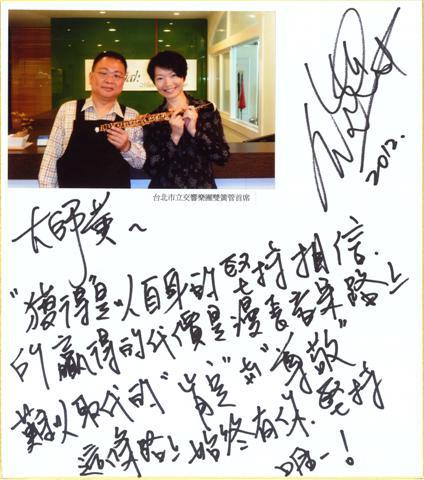 台北市立交響樂團雙簧管首席
2012.
大師黃~
"獲得"是以自身的堅持相信.
所贏得的代價是漫長音樂路上
難以取代的"肯定"與"尊敬"
這條路上始終有你.堅持
喔~!